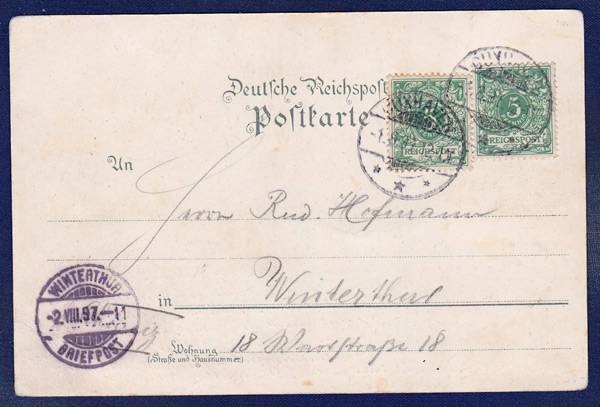 Deutsche Reichspost
Postkarte
5
REICHSPOST
REICHSPOST
CUXHAVEN
An
Herrn Rud. Hofmann
in Winterthur
WINTERTHUR
-2.VIII.97.-11
BRIEFPOST
Wohnung
(Straße und Hausnummer)
18 Wartstraße 18